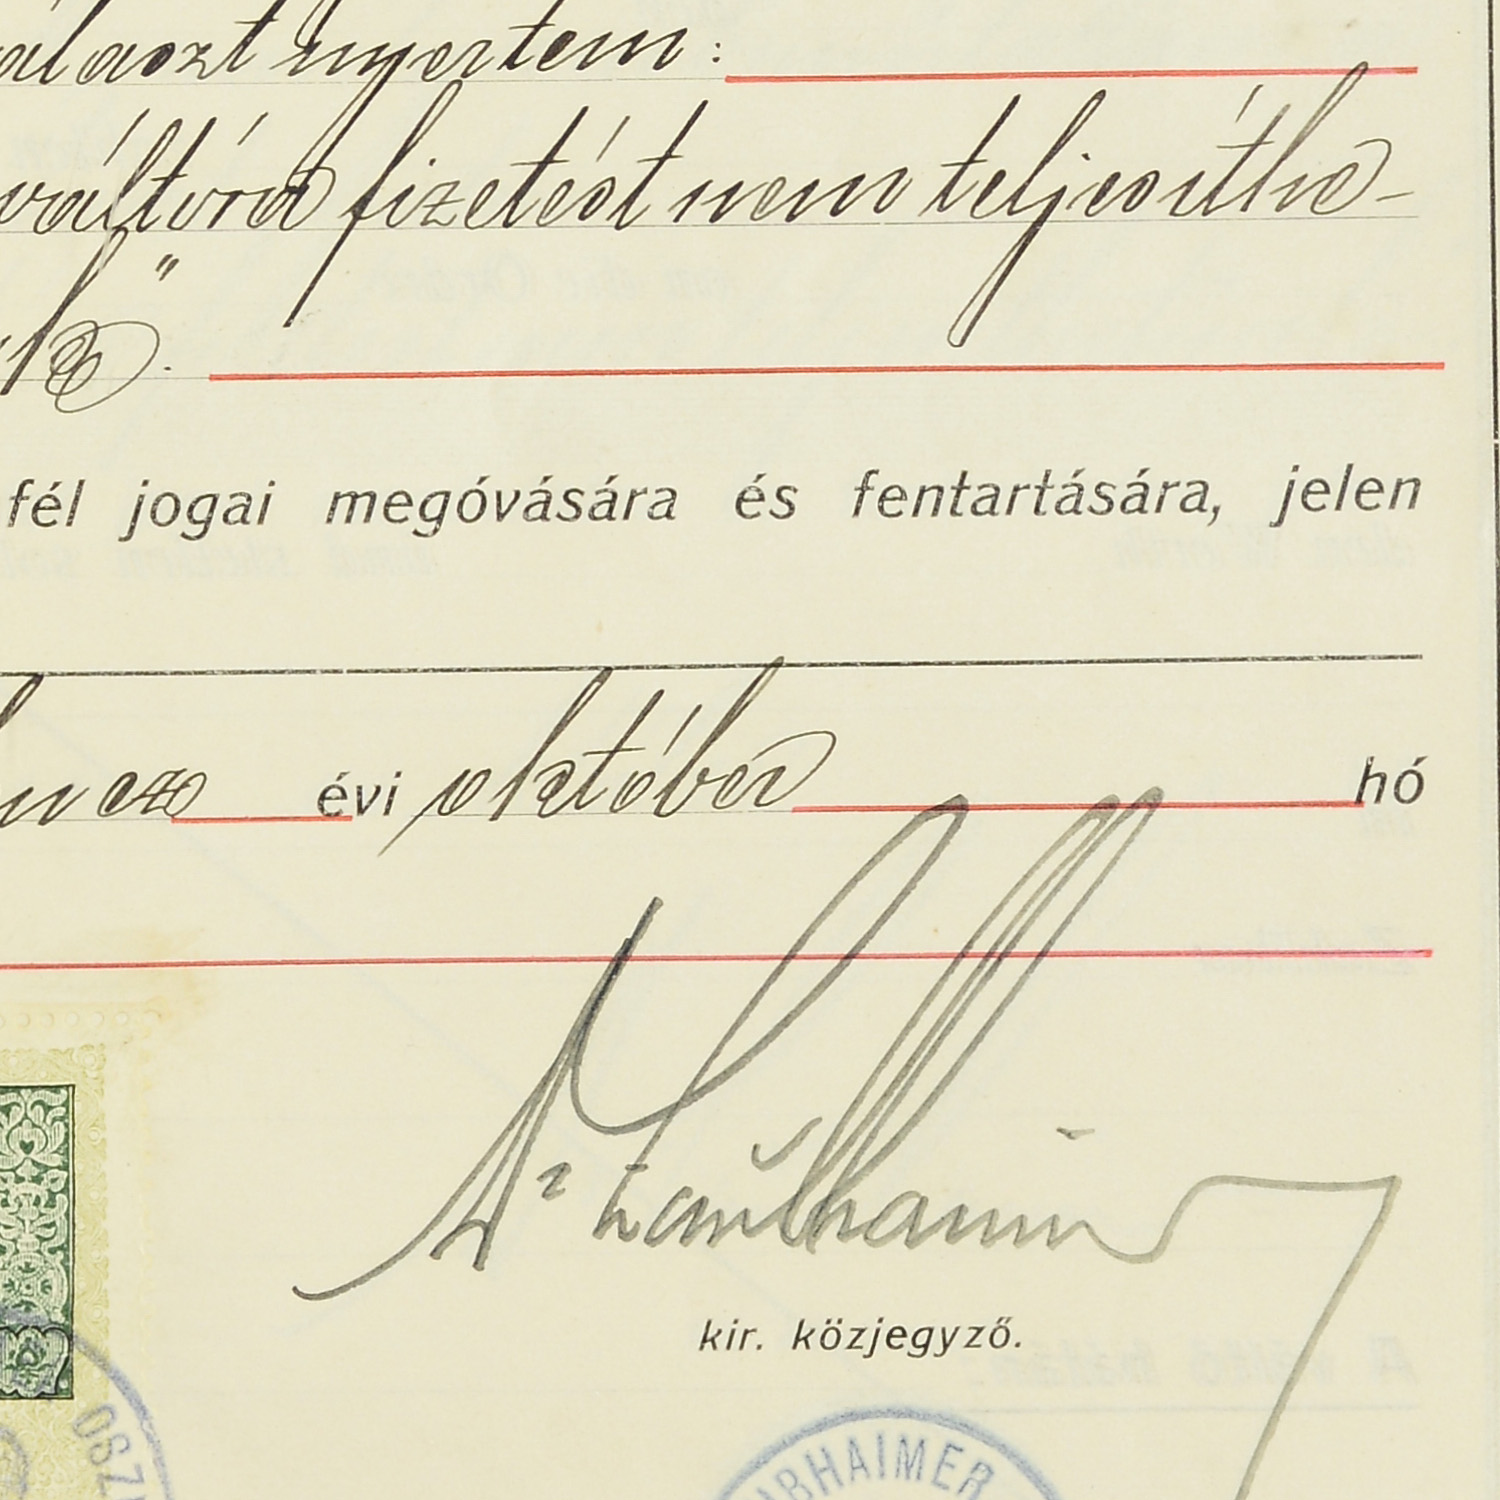 választ nyertem:
váltóra fizetést nem teljesíthe-
fél jogai megóvására és fentartására, jelen
évi október hó
Dr
kir. közjegyző.
OSZ
ABHAIMER